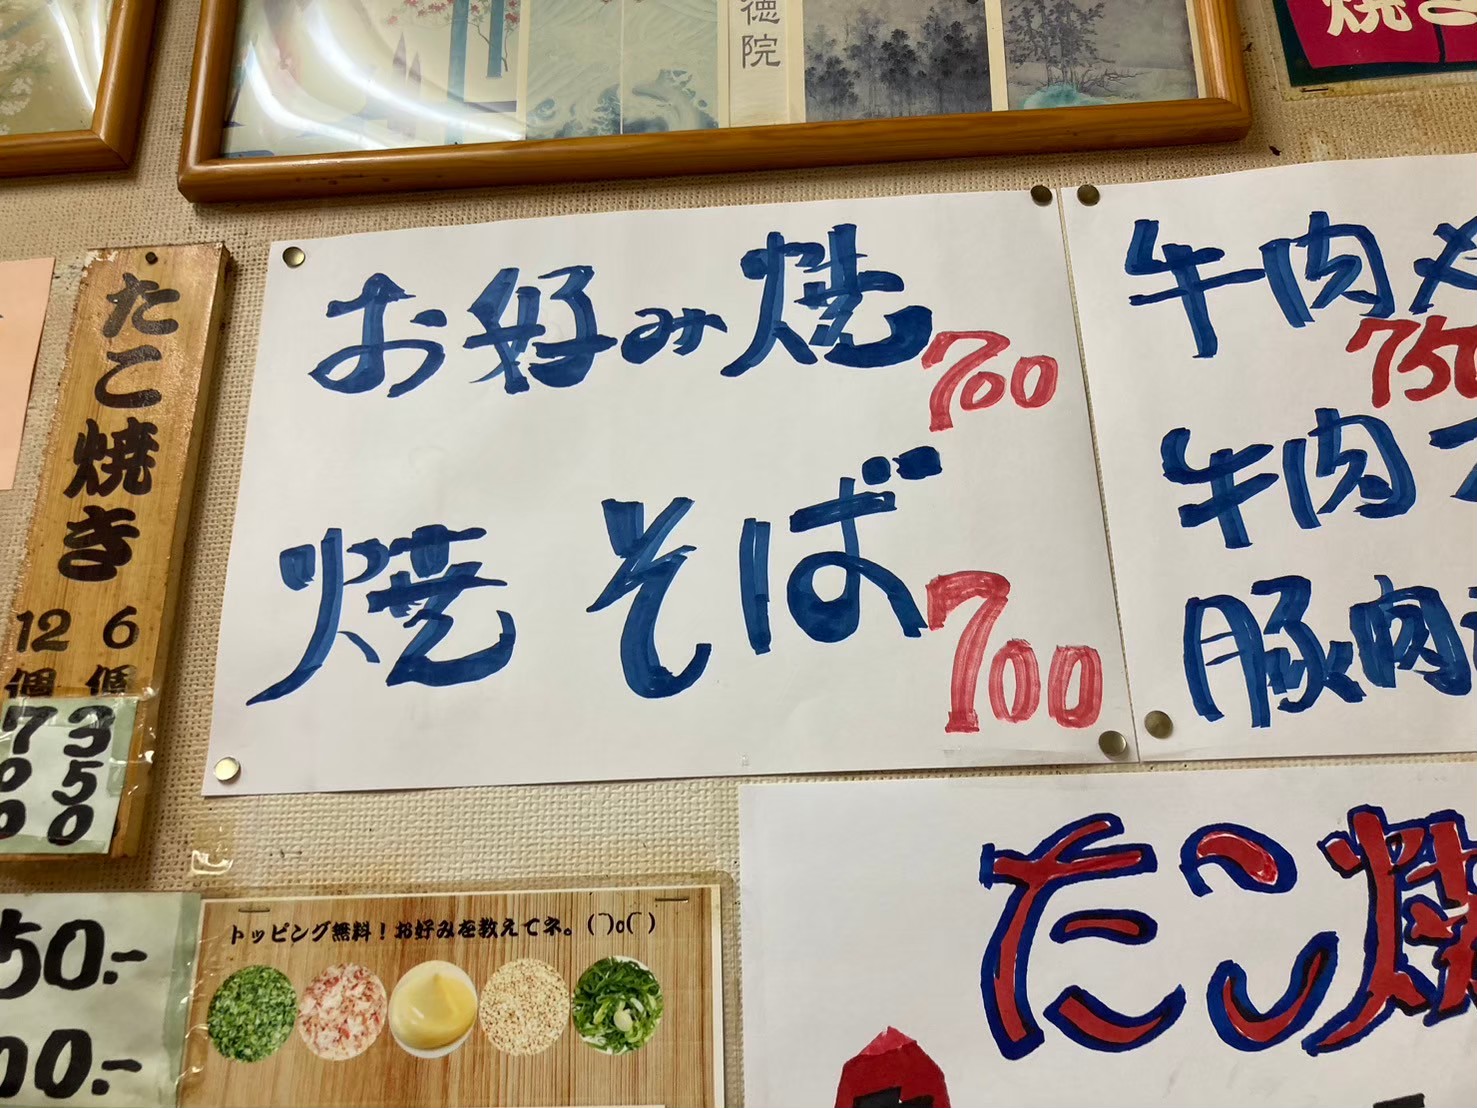 徳院
焼き
たこ焼き
6個
350
12個
700
お好み焼
700
焼そば
700
牛肉
750
牛肉
豚肉
トッピング無料！お好みを教えてネ。(⌒o⌒)
50.-
00.-
たこ焼